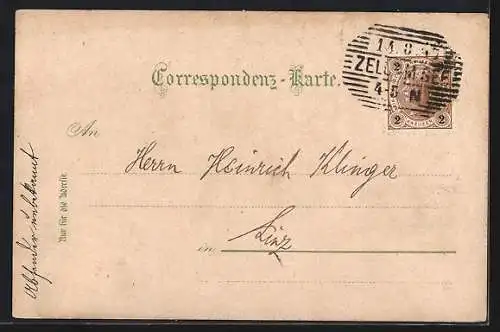 14.8.97
ZELL AM SEE
4-5 N
2 2
KREUZER
2 2
Correspondenz-Karte.
An
Herrn Heinrich Klinger
in Linz
Nur für die Adresse.
Absender unbekannt